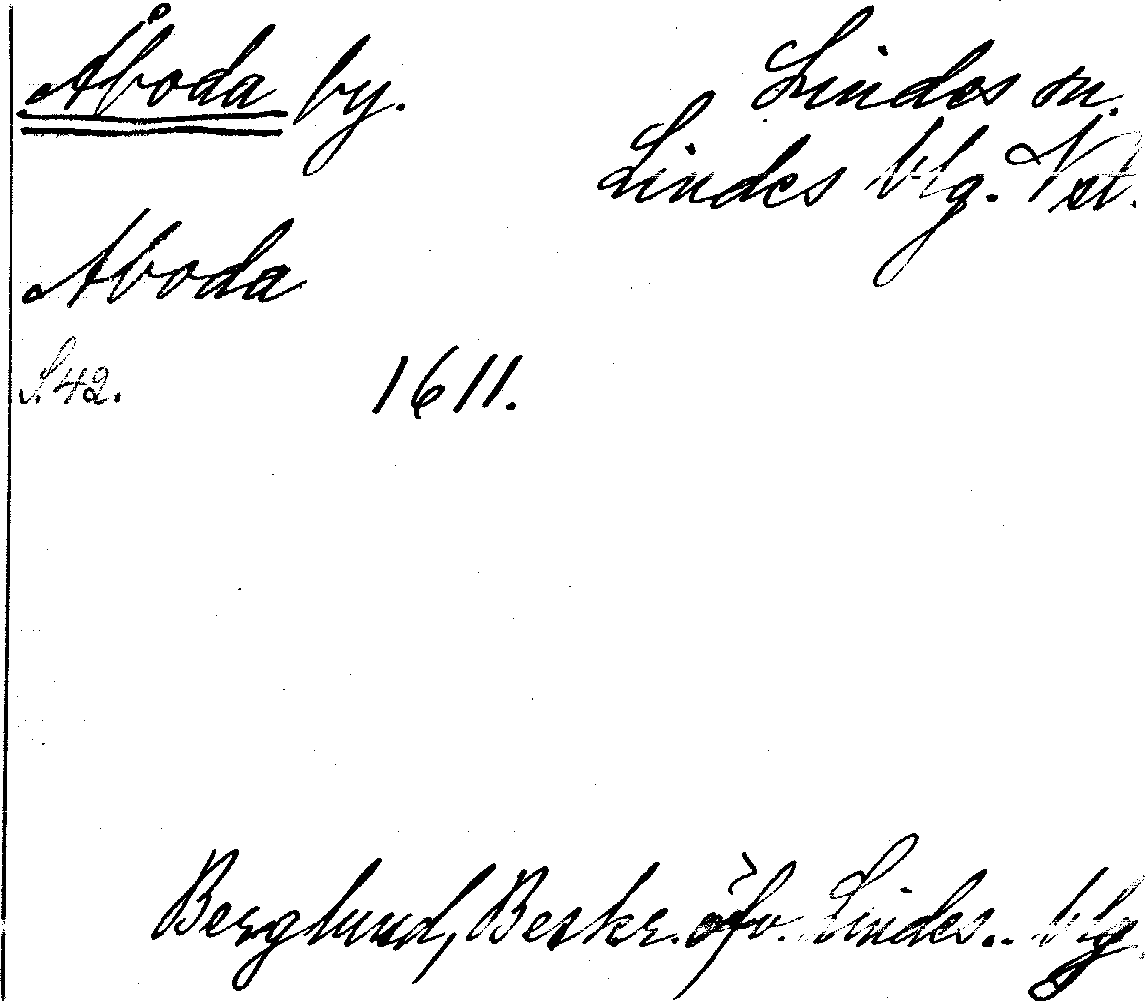 Åboda by.
Lindes sn.
Lindes blg. Vst.
Aboda
S. 42.
1611.
Berglund, Beskr. öfv. Lindes.. blg.